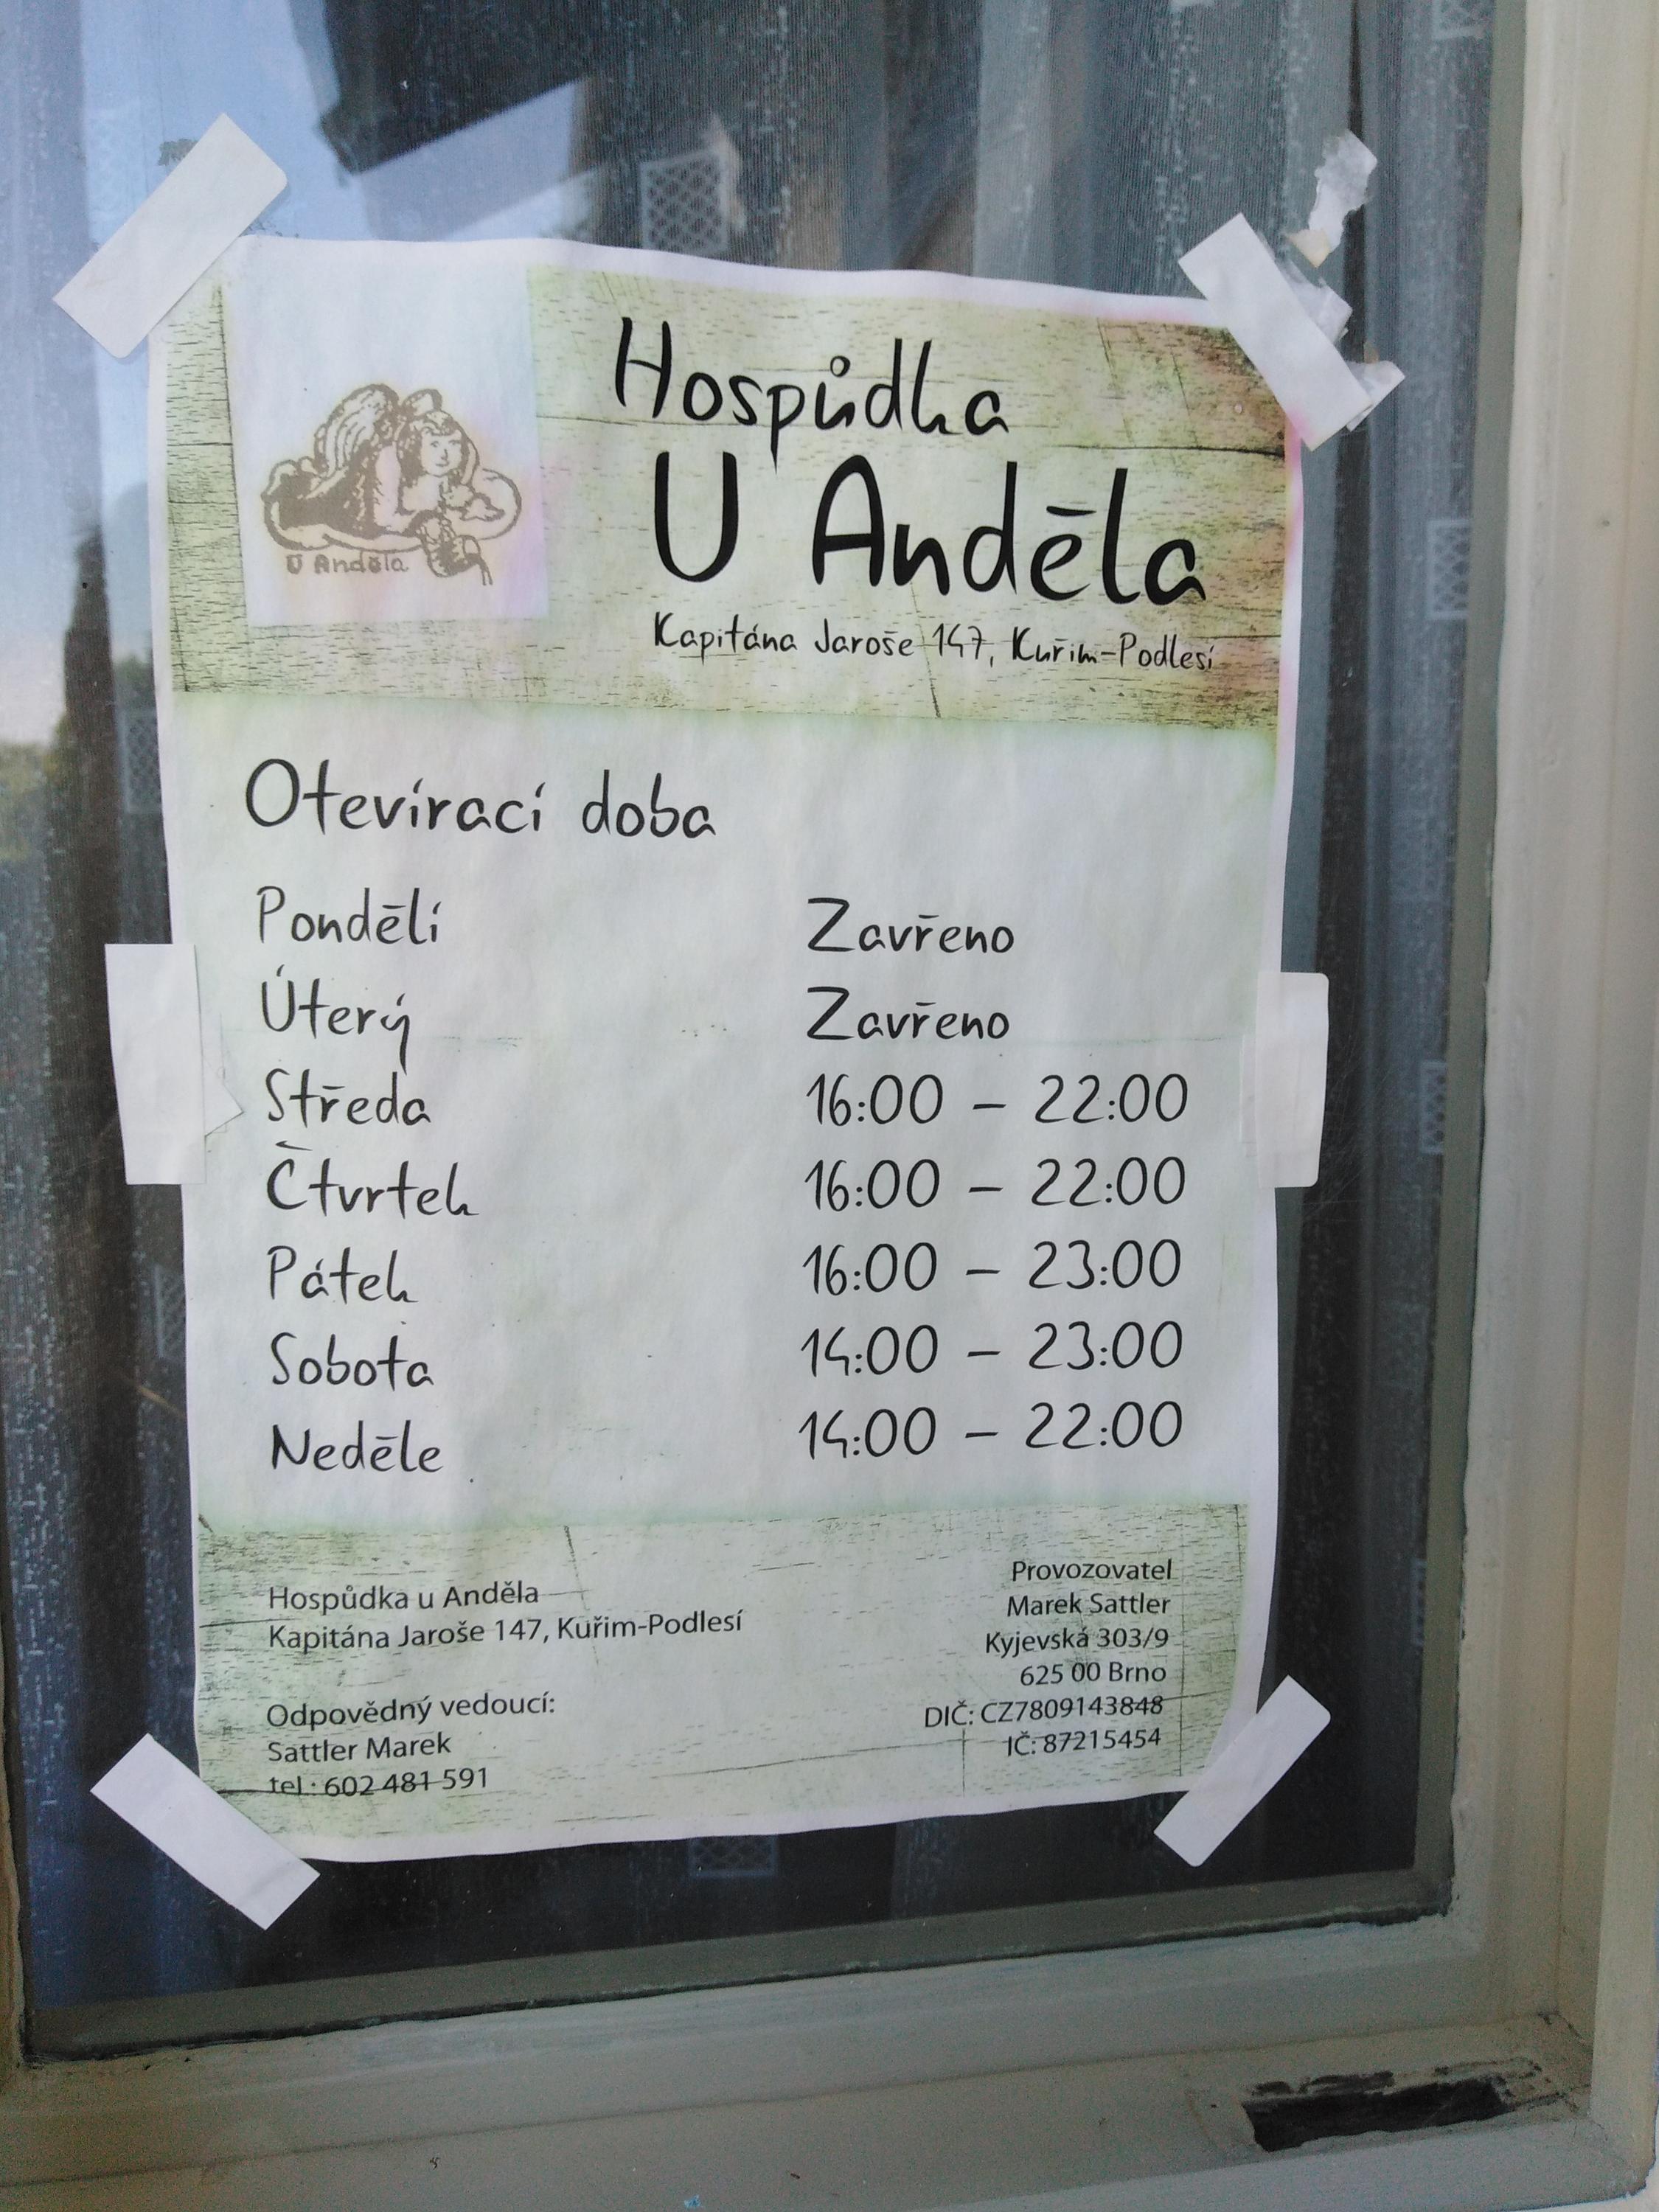 Hospůdka
U Anděla
Kapitána Jaroše 147, Kuřim-Podlesí
U Anděla
Otevírací doba
Pondělí Zavřeno
Úterý Zavřeno
Středa 16:00 – 22:00
Čtvrtek 16:00 – 22:00
Pátek 16:00 – 23:00
Sobota 14:00 – 23:00
Neděle 14:00 – 22:00
Hospůdka u Anděla
Kapitána Jaroše 147, Kuřim-Podlesí
Odpovědný vedoucí:
Sattler Marek
tel.: 602 481 591
Provozovatel
Marek Sattler
Kyjevská 303/9
625 00 Brno
DIČ: CZ7809143848
IČ: 87215454